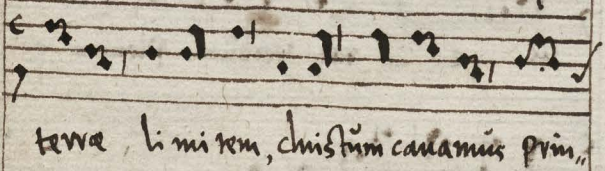 terræ li mi tem, christum canamus prin„